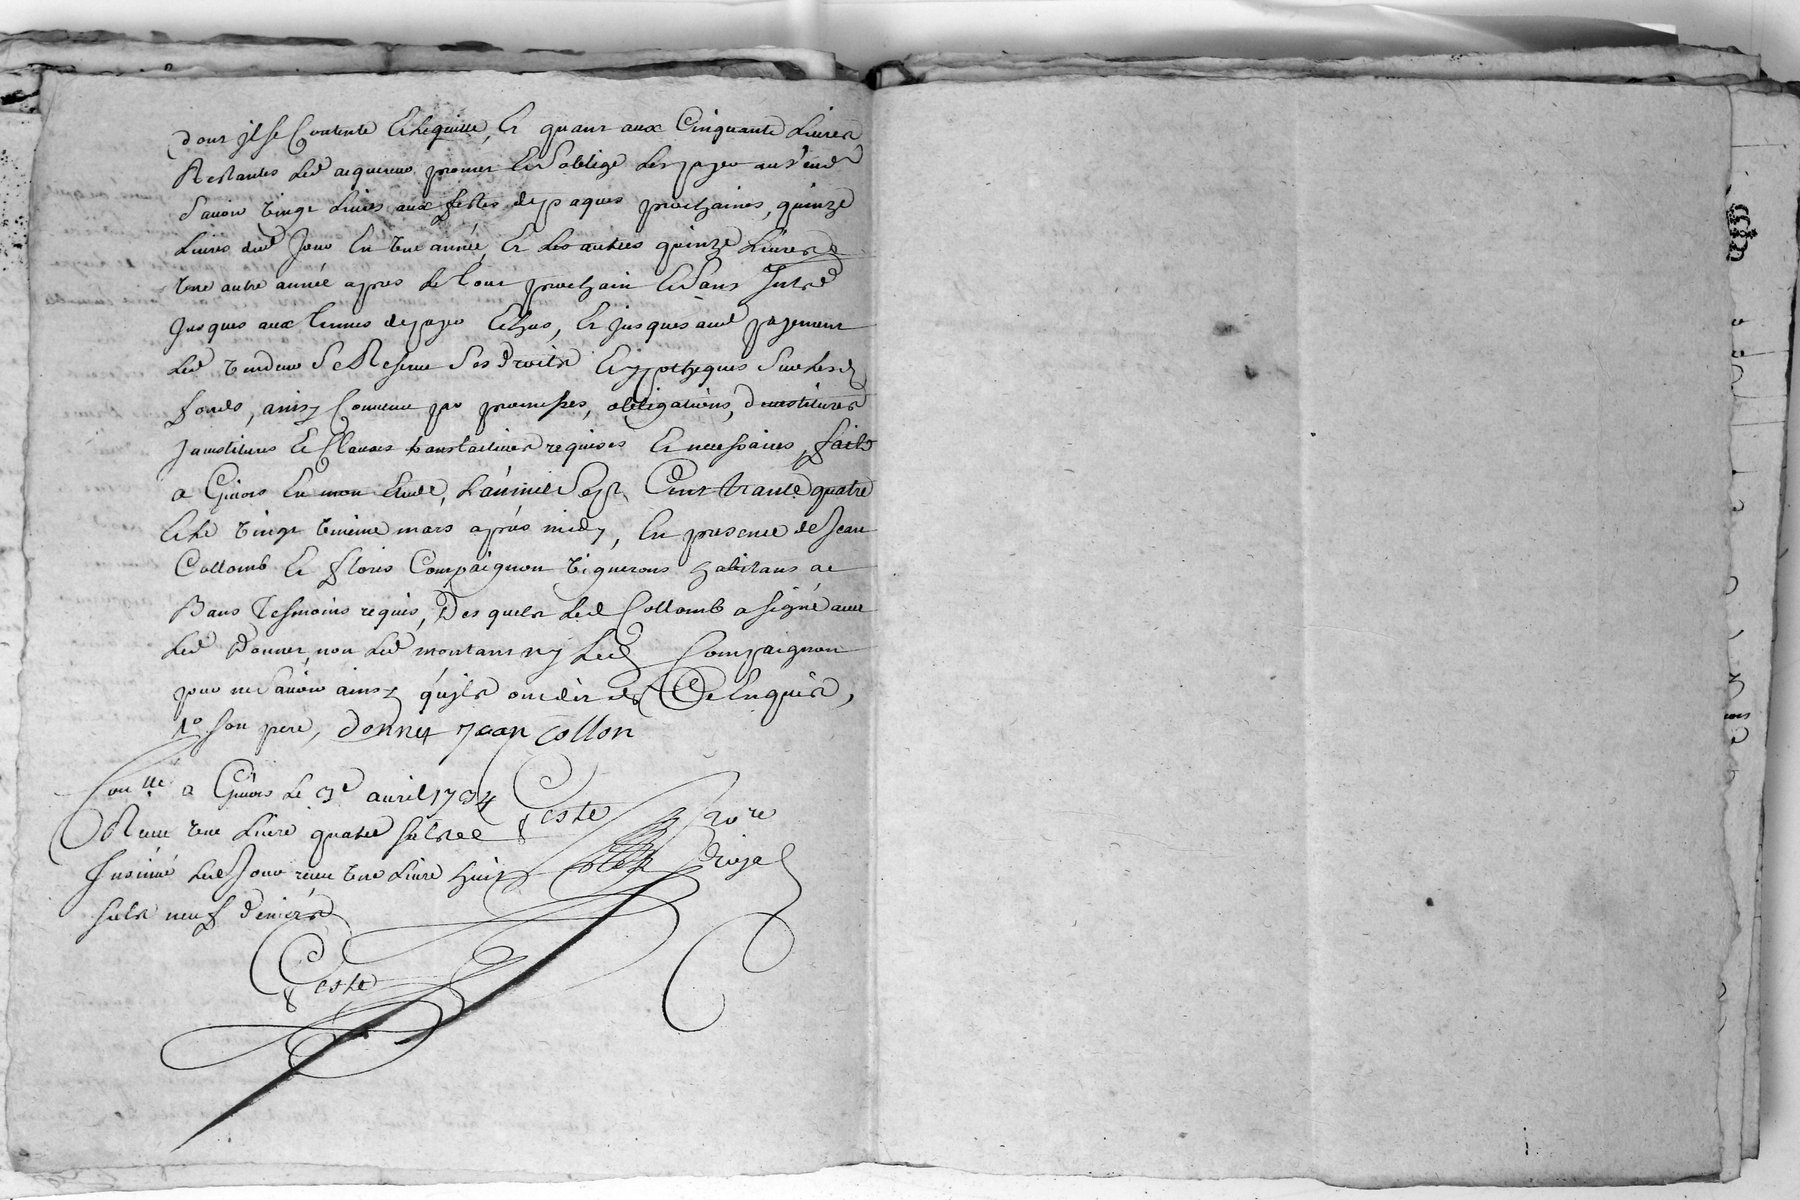 dont il se Contente et le quitte, Et quant aux Cinquante Livres
Restantes Led acquereur promet Et s'oblige Les payer aud vend
Savoir vingt Livres aux festes de paques prochaines, quinze
Livres dud Jour En une année, Et Les autres quinze Livres
une autre année apres Le tout prochain Et sans Intrd
Jusques aux termes de payer Echus, Et jusques aud payement
Led vendeur Se Reserve Ses droits Et ypotheques Sur Lesd
fonds, ainsy Convenu par promesses, obligations, devestitures
Jnvestitures Et Clauses translatives requises Et necessaires, fait
a Givors En mon Etude, L'an mil Sept Cent trante quatre
Et Le vingt mars après midy, En presence de Jean
Collomb Et floris Compaignon vignerons habitans de
Bans tesmoins requis, Des quels Led Collomb a signé avec
Led Donnet non Led montant ny Led Compaignon
pour ne Savoir ainsy qu'ils ont dit de Ce Enquis,
1º son pere, donnet Jean Collon
Con.lle a Givors Le 3e avril 1734
Receu une Livre quatre sols
Insinué Led Jour receu une Livre huit
sols neuf deniers
Coste
No.re
Royal
Coste